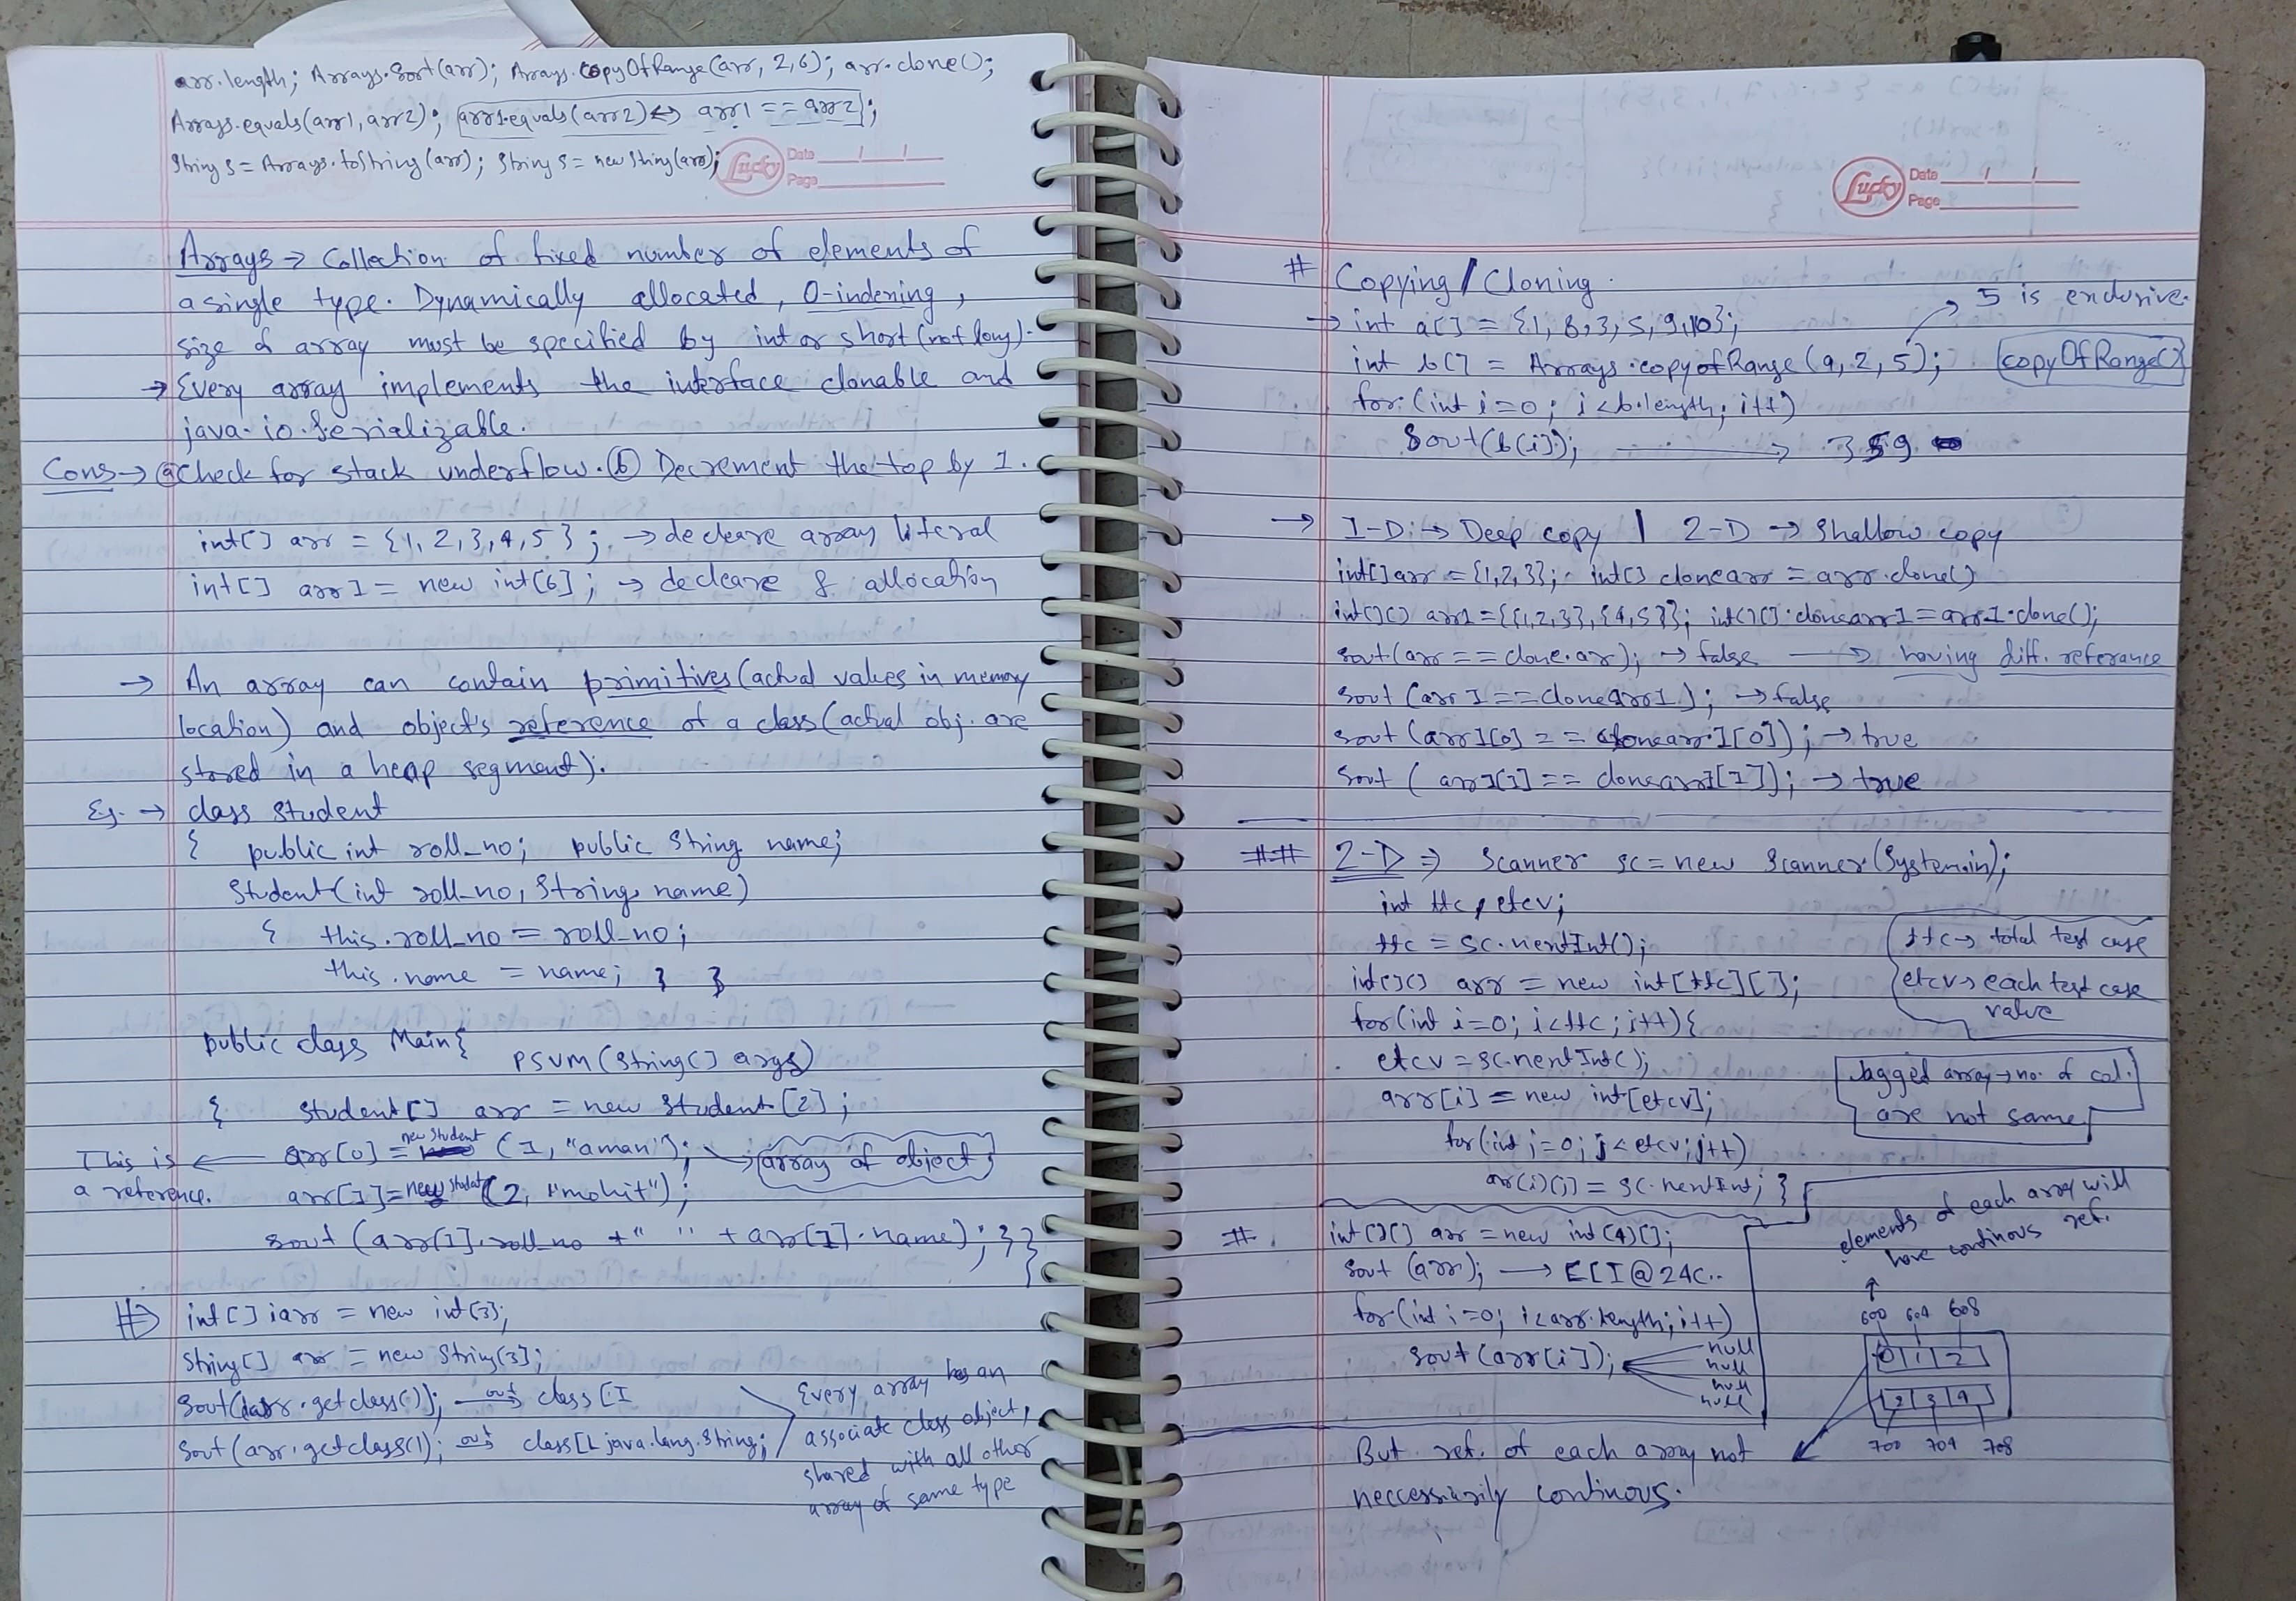 arr.length; Arrays.Sort(arr); Arrays.copyOfRange(arr, 2,6); arr.clone();
Arrays.equals(arr1, arr2); arr1.equals(arr2) ↔ arr1 == arr2;
String s = Arrays.toString(arr); String s = new String(arr);
Lucky
Date / /
Page
Arrays → Collection of fixed number of elements of
a single type. Dynamically allocated, 0-indening,
size of array must be specified by int or short (not long).
→ Every array implements the interface clonable and
java.io.Serializable.
Cons → ⓐ Check for stack underflow. ⓑ Decrement the top by 1.
int[] arr = {1, 2, 3, 4, 5}; → decleare array literal
int[] arr1 = new int[6]; → decleare & allocation
→ An array can contain primitives (actual values in memory
location) and object's reference of a class (actual obj. are
stored in a heap segment).
Eg. → class Student
{ public int roll_no; public String name;
Student(int roll_no, String name)
{ this.roll_no = roll_no;
this.name = name; } }
public class Main{
PSVM (String[] args)
{ Student[] arr = new Student[2];
This is ← arr[0] = new Student (1, "aman"); → array of object;
a reference. arr[1] = new Student (2, "mohit");
sout (arr[1].roll_no + " " + arr[1].name); } }
}
⇒ int[] iarr = new int[3];
String[] arr = new String[3];
Sout(iarr.getclass()); out→ class [I
Sout(arr.getclass()); out→ class[L java.lang.String;
Every array has an
associate class object,
shared with all other
array of same type
Lucky
Date / /
Page
# Copying / Cloning.
→ 5 is enclusive.
→ int a[] = {1, 8, 3, 5, 9, 10};
int b[] = Arrays.copyofRange (a, 2, 5); copyOfRange()
for (int i=0; i<b.length; i++)
Sout(b[i]); → 3 5 9
→ 1-D → Deep copy | 2-D → Shallow copy
int[] arr = {1,2,3}; int[] clonearr = arr.clone()
int[][] arr1 = {{1,2,3},{4,5}}; int[][] clonearr1 = arr1.clone();
sout(arr == clone.ar); → false → having diff. referance
sout (arr1 == clonearr1); → false
sout (arr1[0] == clonearr1[0]); → true
Sout (arr1[1] == clonearr1[1]); → true
## 2-D ⇒ Scanner sc = new Scanner(System.in);
int ttc, etcv;
ttc = sc.nentInt();
ttc → total test case
etcv → each test case
value
int[][] arr = new int[ttc][];
for(int i=0; i<ttc; i++){
etcv = sc.nentInt();
arr[i] = new int[etcv];
Jagged array → no. of col.
are not same
for(int j=0; j<etcv; j++)
ar[i][j] = sc.nentInt; }
# int[][] arr = new int[4][];
Sout (arr); → [[I@24C..
for(int i=0; i<arr.length; i++)
sout (arr[i]);
null
null
null
null
elements of each array will
have continous ref.
600 604 608
0 | 1 | 2
2 | 3 | 4
700 704 708
But ref. of each array not
neccessiarily continous.